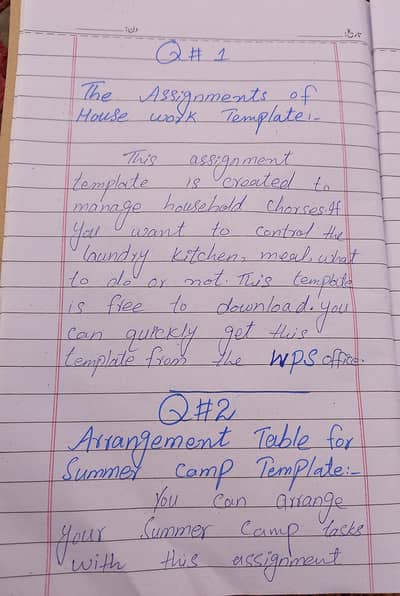 Q # 1
The Assignments of
House work Template:-
This assignment
template is created to
manage household chorses.If
You want to control the
laundry kitchen, meal, what
to do or not. This template
is free to download. you
can quickly get this
template from the WPS office.
Q #2
Arrangement Table for
Summer Camp Template:-
You can arrange
your Summer Camp tasks
with this assignment